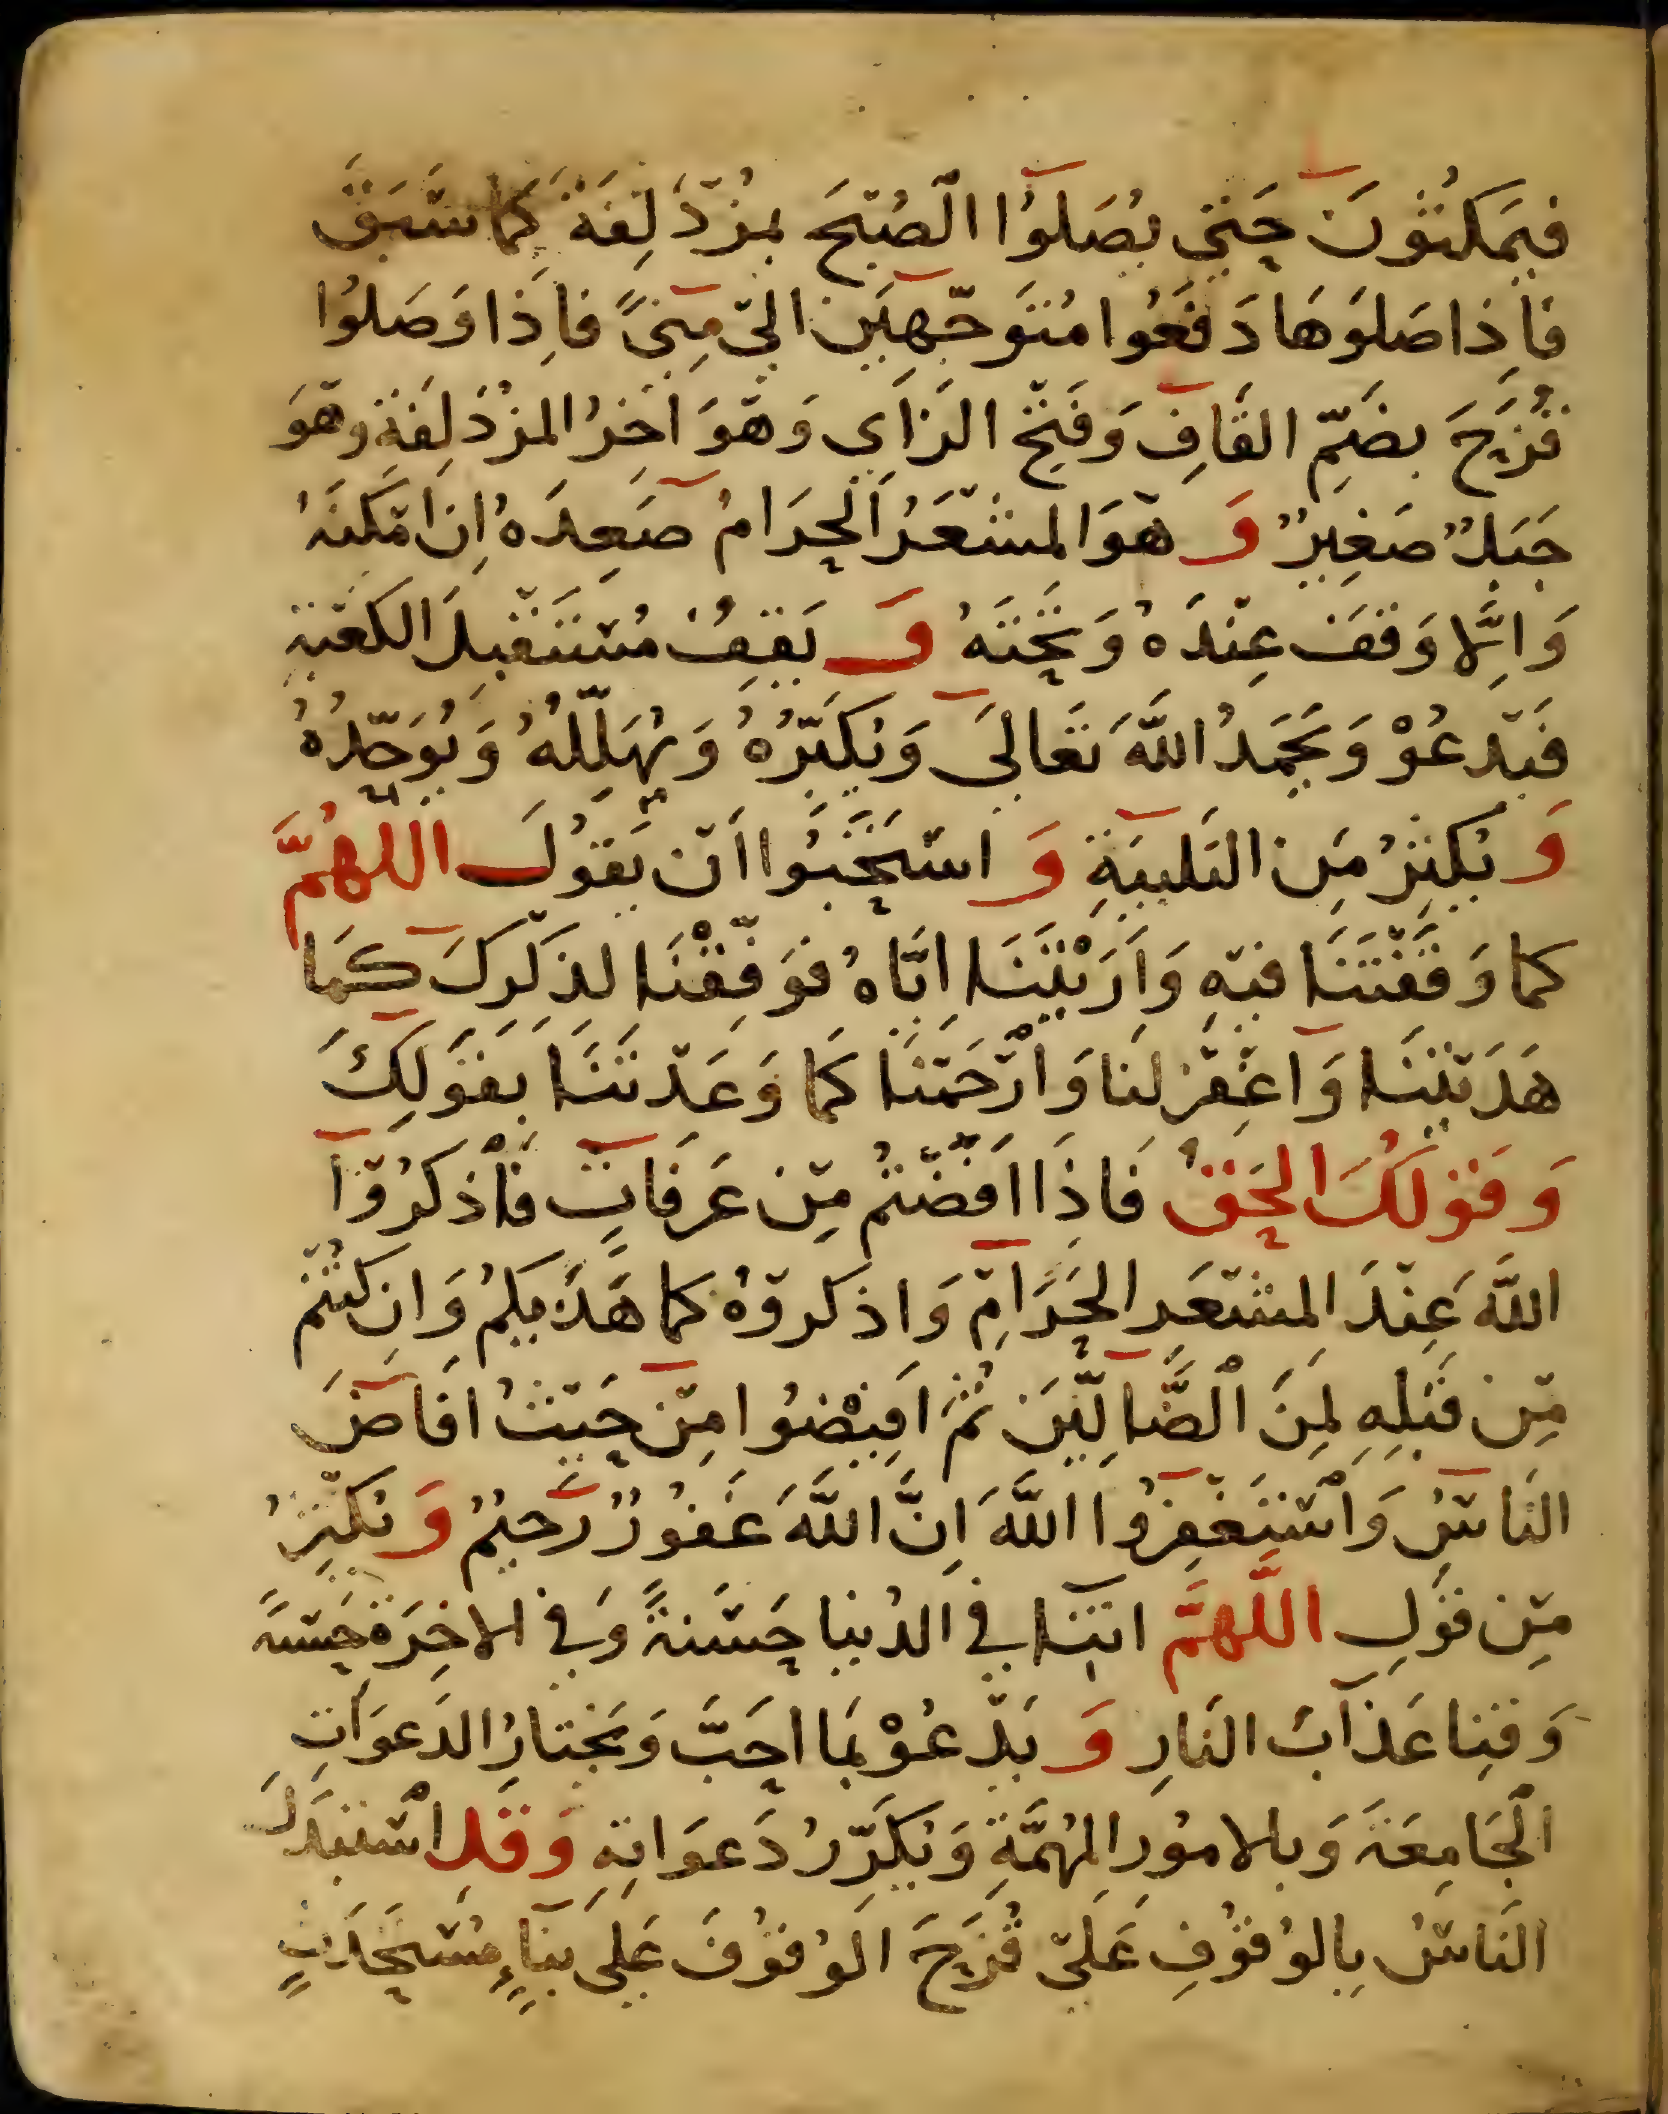 فيَمكثُونَ حَتى يُصَلوُا الصُبْحَ بمُزْدَلِفَة كَما سَبَقَ
فاِذا صَلوَها دَفَعُوا مُتَوجّهِيَن الىْ مِنىً فاِذا وَصَلوُا
قُزَحَ بضَمِّ القَافِ وَفَتحْ الزَايِ وَهْوَ اخَرُ المزْدَلِفَةِ وهْوَ
جَبَلٌ صَغِيرٌ وَ هْوَ المشْعَرُ الحَرَامُ صَعِدَهُ اِن امْكَنَهُ
وَاِلَّا وَقَفَ عِنْدَهُ وَتَحْتَهُ وَ يَقِفُ مُسْتَقْبِلَ الكَعْبَة
فَيَدْعُوْ وَيَحْمَدُ اللَّهَ تعَالىَ وَيُكَبّرُهُ وَيُهَلّلهُ وَيُوَحّدُهُ
وَ يُكثِرُ مِن التَلبيَةِ وَ اسْتَحَبُّوا اَنْ يَقوُلَ اللهُمَّ
كما وَقفْتَنَا فيْهِ وَاَرَيْتَنَا اِيَّاهُ فوَفِّقْنَا لذِكرِكَ كَما
هَدَيْتنَا وَاغْفِرْ لنا وَارْحَمْنَا كَما وَعَدْتنَا بقَولِكَ
وَقوْلكَ الحَق فَاِذَا اَفَضْتُم مِّنْ عَرَفاتٍ فَاْذكرُوْا
اللَّهَ عِنْدَ المشْعَرِ الحَرَامِ وَاذكروْهُ كما هَدَيكمُ وَاِن كنْتُمْ
مِّنْ قَبْلِهِ لمِنَ الضَّالِّيَن ثُمَّ اَفِيْضُوا مِنْ حَيْثُ افَاضَ
النَاسُ وَاسْتَغْفِرُوا اللَّهَ اِنَّ اللَّهَ غَفوُرٌ رَحيمٌ وَ يُكْثِرُ
مِنْ قوَلِ اللَّهمَّ اتنَا في الدُنيا حَسَنةً وَفي الاخِرَة حَسَنَة
وَقِنا عَذابَ النَارِ وَ يَدْعُوْ بمَا احَبَّ وَيَختارُ الدَعوَاتِ
الْجَامِعَة وَبالامُورِ المُهِمَّةِ وَيُكَرِّرُ دَعوَاتِهِ وَقَدِ اسْتبْدَلَ
النَاسُ بِالوُقوُفِ عَلىْ قُزَحَ الوُقوُفَ عَلى بنَاءٍ مُسْتَحْدَثٍ